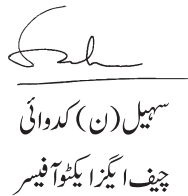 سہیل (ن) کدوائی
چیف ایگزایکٹو آفیسر